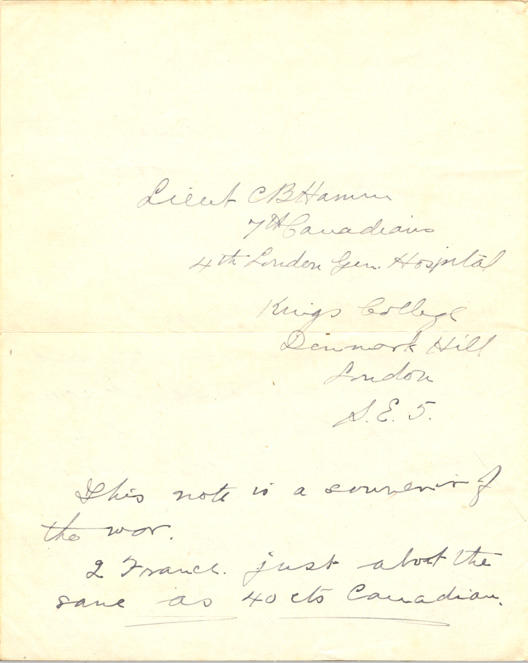 Lieut CB Hamm
7th Canadians
4th London Gen. Hospital
Kings College
Denmark Hill
London
S.E. 5.
This note is a souvenir of
the war.
2 Franc. just about the
same as 40 cts Canadian.